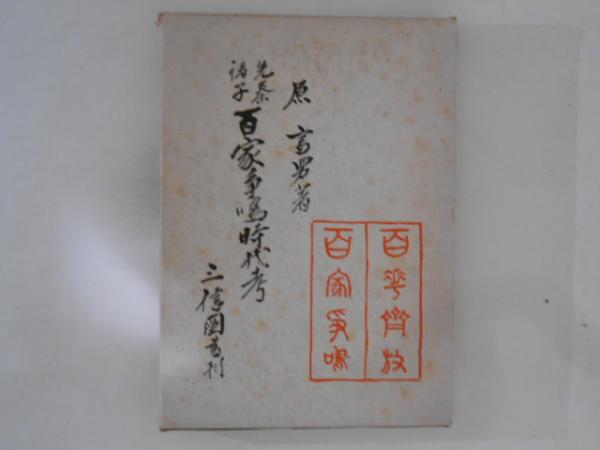 原富男著
先秦
諸子
百家争鳴時代考
三信図書刊
百花齊放
百家争鳴